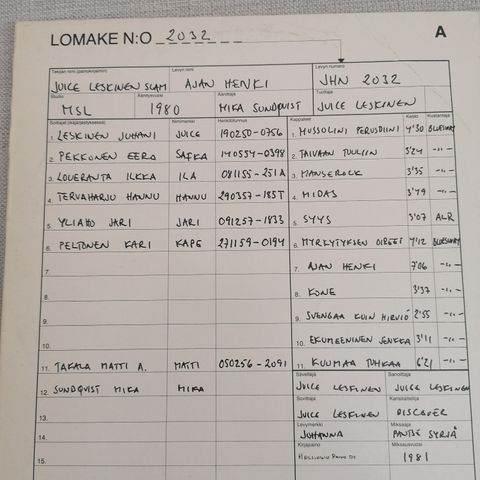 LOMAKE N:O 2032
A
Tekijän nimi (pääesitt.) Levyn nimi Levyn numero
JUICE LESKINEN SLAM AJAN HENKI JHN 2032
Studio Äänitysvuosi Äänittäjä Tuottaja
MSL 1980 MIKA SUNDQVIST JUICE LESKINEN
Nimimerkki Henkilötunnus Kappaleet Kesto Kustantaja
1. LESKINEN JUHANI JUICE 190250-0756 1. MUSSOLINI PERUSDIINI 4'30 BLUEBERRY
2. PEKKONEN EERO SAFKA 140554-0398 2. TAIVAAN TUULIIN 3'24 -"-
3. LOUERANTA ILKKA ILA 081155-251A 3. MANSEROCK 3'35 -"-
4. TERVAHARJU HANNU HANNU 290357-185T 4. MIDAS 3'49 -"-
5. YLIAHO JARI JARI 091257-1833 5. SYYS 3'07 ALR
6. PELTONEN KARI KAPE 271159-0194 6. MYRKYTYKSEN OIREET 4'12 BLUEBERRY
7. 7. AJAN HENKI 7'06 -"-
8. 8. KONE 3'37 -"-
9. 9. SVENGAA KUIN HIRVIÖ 2'55 -"-
10. 10. EKUMEENINEN JENKKA 3'11 -"-
11. TAKALA MATTI A. MATTI 050256-2091 11. KUUMAA TUHKAA 6'21 -"-
12. SUNDQVIST MIKA MIKA
Säveltäjä Sanoittaja
JUICE LESKINEN JUICE LESKINEN
13.
Sovittaja Kansitaiteilija
JUICE LESKINEN DISCOVER
14.
Levymerkki Miksaaja
JOHANNA PANTSE SYRJÄ
Kirjapaino Miksausvuosi
15. 1981